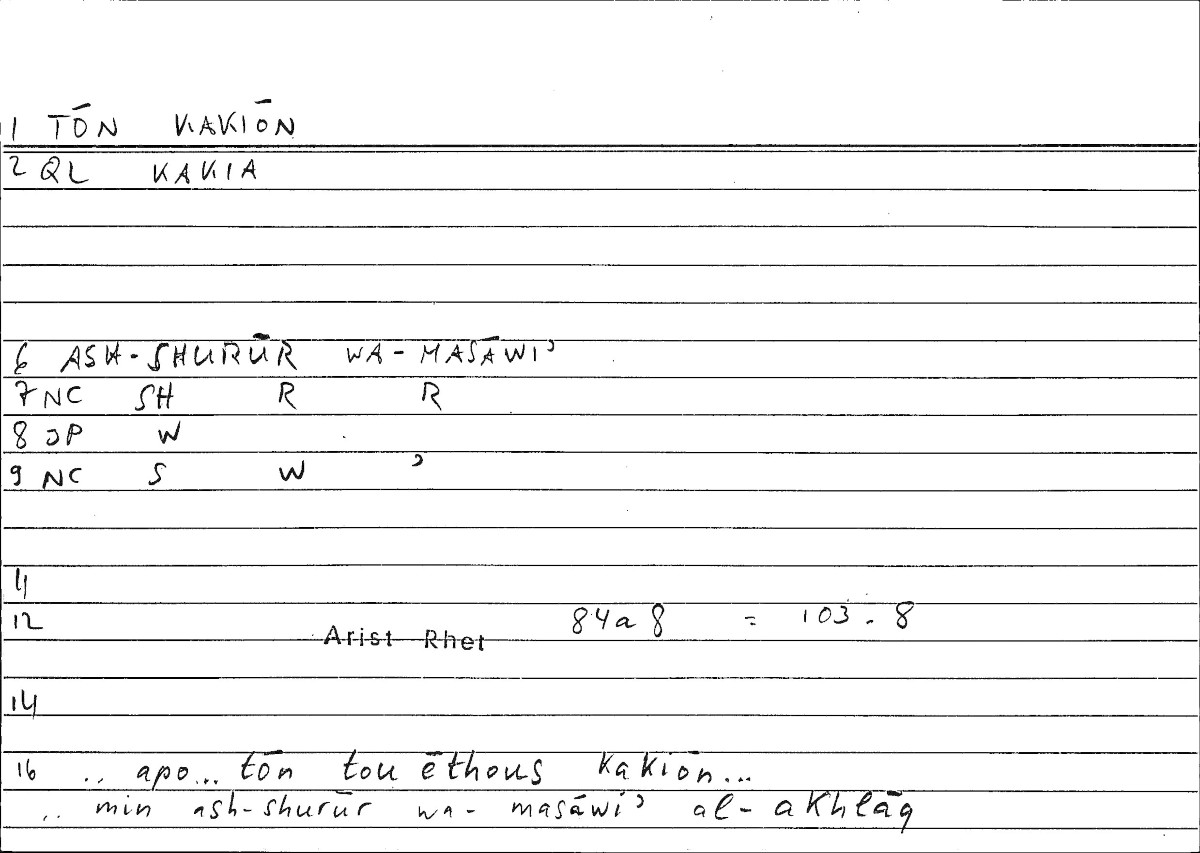 1 TŌN KAKIŌN
2 QL KAKIA
6 ASH-SHURŪR WA-MASĀWIʾ
7 NC SH R R
8 JP W
9 NC S W ʾ
11
12 Arist Rhet 84a8 = 103.8
14
16 .. apo... tōn tou ēthous kakiōn...
.. min ash-shurūr wa-masāwiʾ al-akhlāq